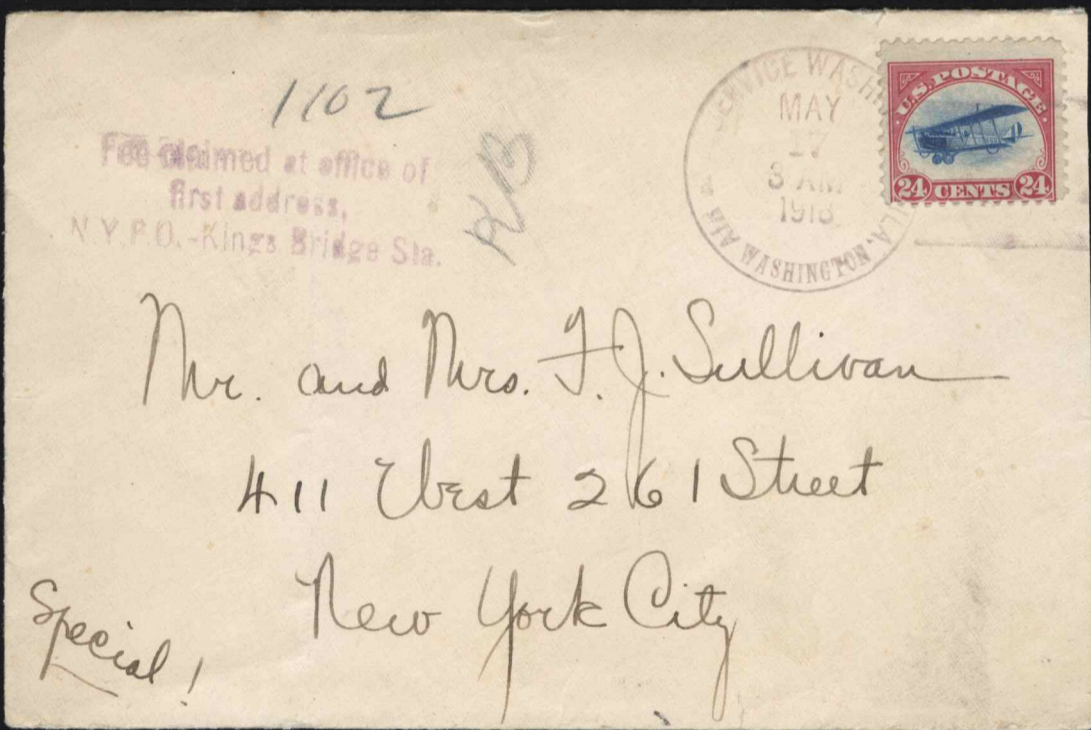 1102
Fee claimed at office of
first address,
N.Y.P.O.-Kings Bridge Sta.
AIR SERVICE WASH PHILA.
WASHINGTON
MAY
17
3 AM
1918
U.S. POSTAGE
24 CENTS 24
Mr. and Mrs. F. J. Sullivan
411 West 261 Street
New York City
Special!